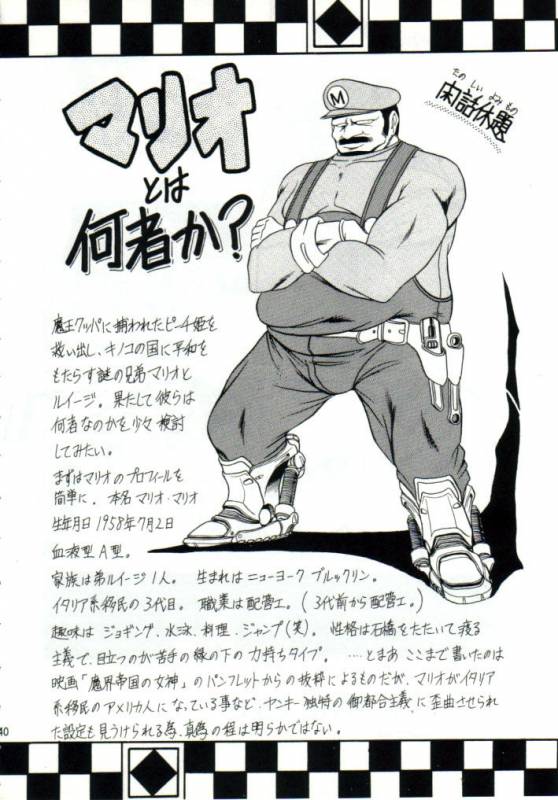 マリオ
とは
何者か?
たの しい よみ もの
閑話休題
M
魔王クッパに捕われたピーチ姫を
救い出し、キノコの国に平和を
もたらす謎の兄弟マリオと
ルイージ。果たして彼らは
何者なのかを少々検討
してみたい。
まずはマリオのプロフィールを
簡単に。本名 マリオ・マリオ
生年月日 1958年7月2日
血液型 A型。
家族は弟ルイージ1人。 生まれはニューヨーク ブルックリン。
イタリア系移民の3代目。 職業は配管工。(3代前から配管工。)
趣味は ジョギング、水泳、料理、ジャンプ(笑)。 性格は石橋をたたいて渡る
主義で、目立つのが苦手の縁の下の力持ちタイプ。 …とまあ ここまで書いたのは
映画「魔界帝国の女神」のパンフレットからの抜粋によるものだが、マリオがイタリア
系移民のアメリカ人になっている事など、ヤンキー独特の御都合主義に歪曲させられ
た設定も見うけられる為、真偽の程は明らかではない。
40